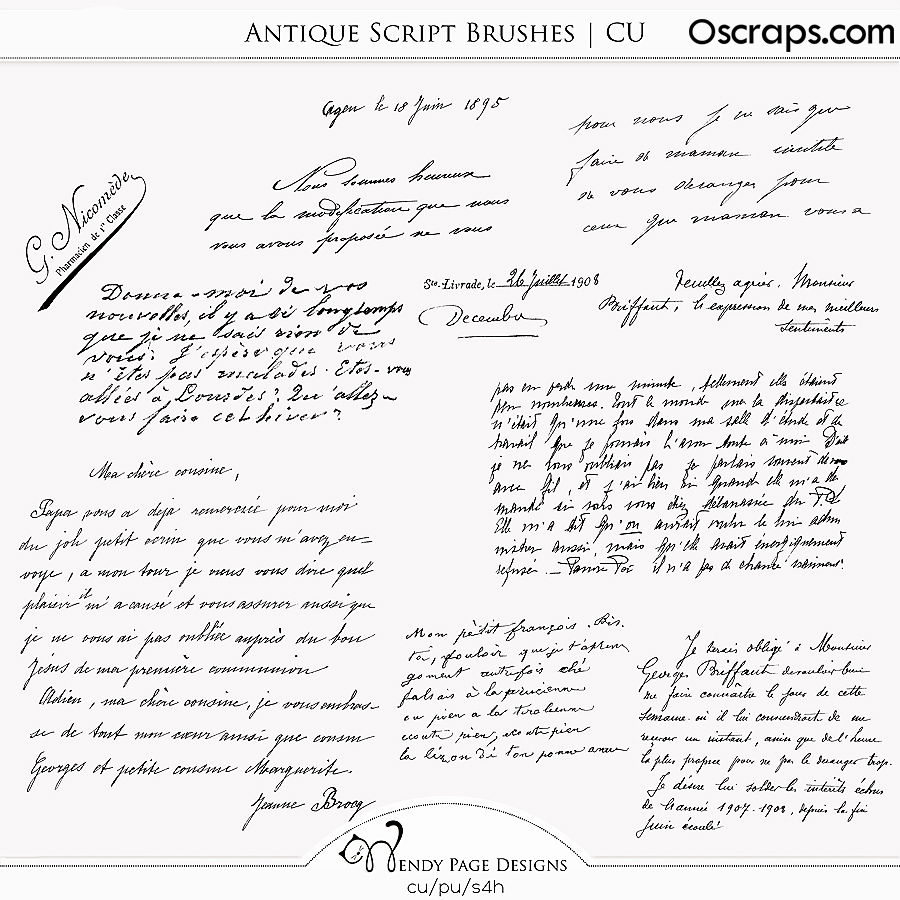 ANTIQUE SCRIPT BRUSHES | CU
Oscraps.com
Agen le 18 Juin 1895
pour nous je ne sais que
faire de maman
de vous déranger pour
ceux que maman vous a
G. Nicomède
Pharmacien de 1re Classe
Nous sommes heureux
que la modification que nous
vous avons proposée ne vous
Donne-moi de vos
nouvelles, il y a si longtemps
que je ne sais rien de
vous. J'espère que vous
n'êtes pas malades. Etes-vous
allées à Lourdes? Qu'allez-
vous faire cet hiver?
Ste-Livrade, le 26 Juillet 1908
Decembre
Veuillez agréer, Monsieur
Briffaut, l'expression de mes meilleurs
sentiments
pas en perdre une minute, tellement elles étaient
peu nombreuses. Tout le monde
n'était qu'une fois dans ma salle d'étude et de
travail que je
je ne vous oubliais pas je parlais souvent de vous
avec
Elle m'a dit qu'on aurait
mais qu'elle avait énergiquement
refusé. il n'a pas de chance vraiment.
Ma chère cousine,
Papa vous a déjà remerciée pour moi
du joli petit écrin que vous m'avez en-
voyé, à mon tour je viens vous dire quel
plaisir il m'a causé et vous assurer aussi que
je ne vous ai pas oubliée auprès du bon
Jésus de ma première communion
Adieu, ma chère cousine, je vous embras-
se de tout mon cœur ainsi que cousin
Georges et petite cousine Marguerite.
Jeanne Brocq
Mon pètit françois.
autrefois
falsais à la
ou pien a la tiralienne
ecoute pien, ecoute pien
la lezon dé ton ponne
Je serais obligé à Monsieur
Georges Briffaut de vouloir bien
me faire connaître le jour de cette
semaine où il lui conviendrait de me
recevoir un instant, ainsi que de l'heure
la plus propice pour ne pas le déranger trop.
Je désire lui solder les intérêts échus
de l'année 1907-1908, depuis la fin
Juin écoulé
WENDY PAGE DESIGNS
cu/pu/s4h